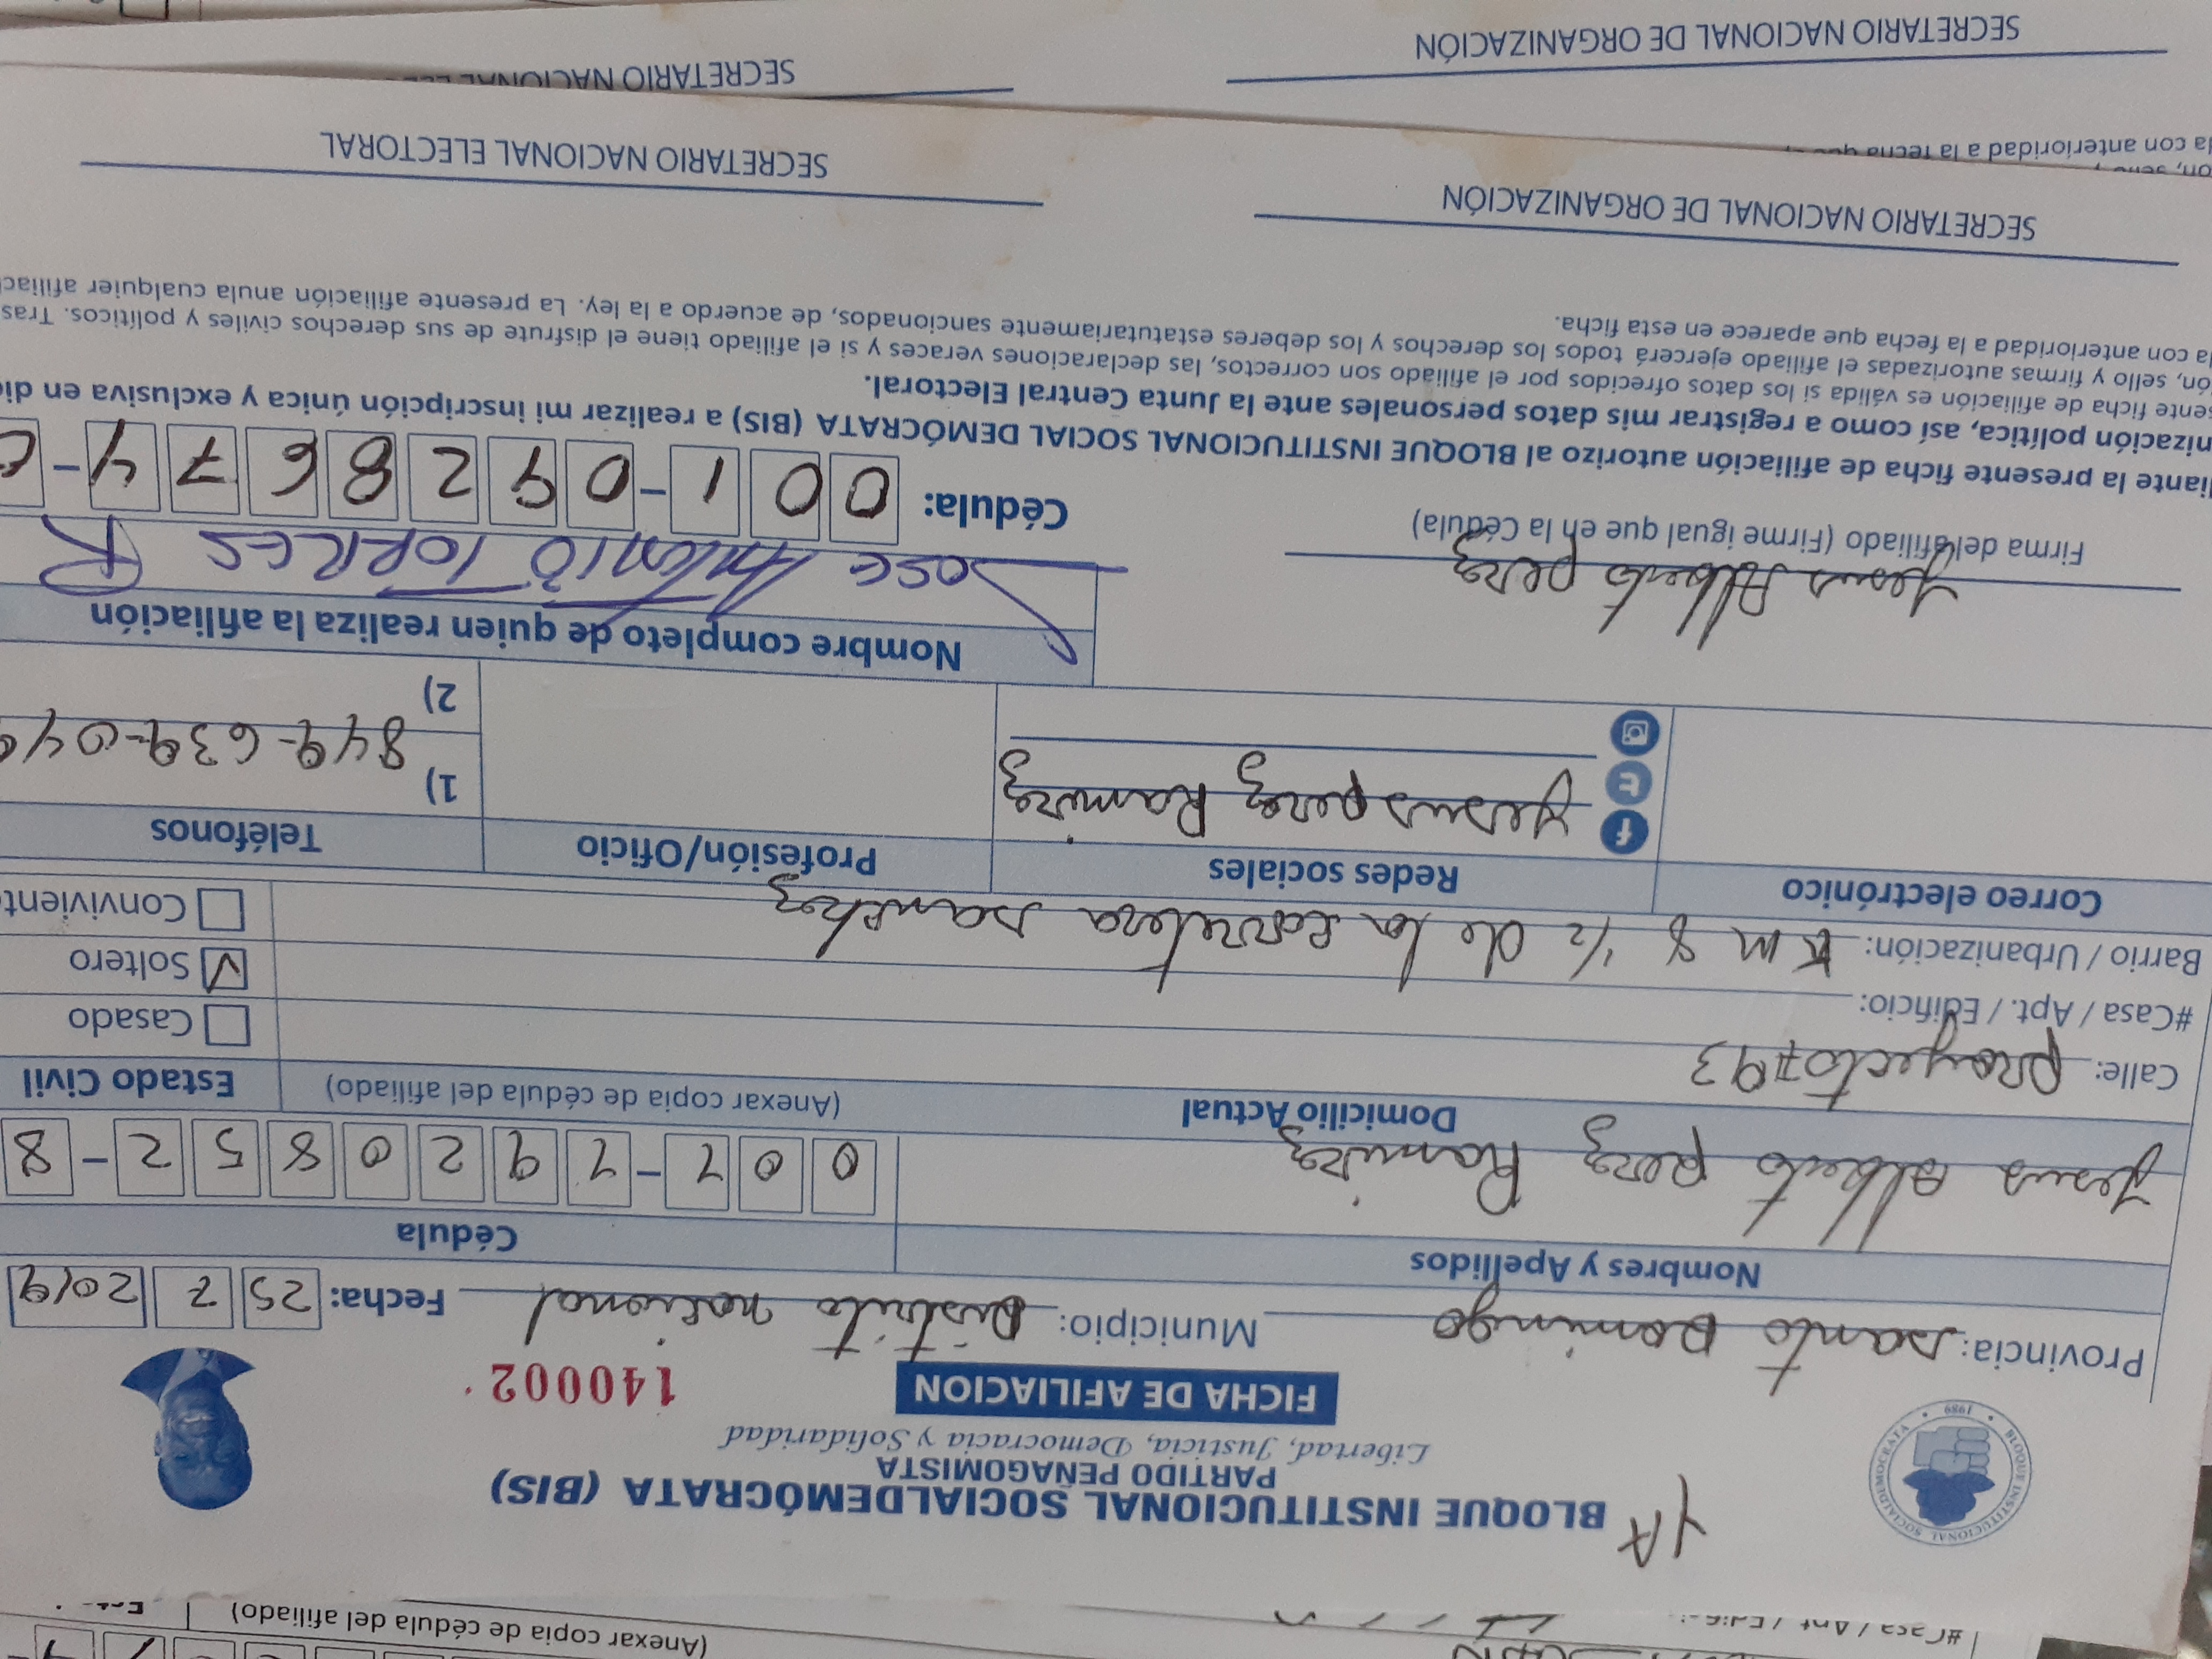 BLOQUE INSTITUCIONAL SOCIALDEMÓCRATA (BIS)
PARTIDO PEÑAGOMISTA
Libertad, Justicia, Democracia y Solidaridad
FICHA DE AFILIACION 140002
BLOQUE INSTITUCIONAL SOCIALDEMÓCRATA • 1989 •
Provincia: Santo Domingo Municipio: Distrito nacional Fecha: 25 7 2019
Nombres y Apellidos Cédula
Jesus Alberto perez Ramirez 0 0 1 - 1 9 2 0 8 5 2 - 8
Domicilio Actual (Anexar copia de cédula del afiliado) Estado Civil
Calle: proyecto #93 Casado
#Casa / Apt. / Edificio: Soltero
Barrio / Urbanización: Km 8 1/2 de la carretera sanchez Convivient
Correo electrónico Redes sociales Profesión/Oficio Teléfonos
Jesus perez Ramirez 1) 849-639-04
2)
Nombre completo de quien realiza la afiliación
Jesus Alberto perez Jose Antonio TORRES R
Firma del afiliado (Firme igual que en la Cédula) Cédula: 0 0 1 - 0 9 2 8 6 7 4 -
iante la presente ficha de afiliación autorizo al BLOQUE INSTITUCIONAL SOCIAL DEMÓCRATA (BIS) a realizar mi inscripción única y exclusiva en di
nización política, así como a registrar mis datos personales ante la Junta Central Electoral.
sente ficha de afiliación es válida si los datos ofrecidos por el afiliado son correctos, las declaraciones veraces y si el afiliado tiene el disfrute de sus derechos civiles y políticos. Tras
ón, sello y firmas autorizadas el afiliado ejercerá todos los derechos y los deberes estatutariamente sancionados, de acuerdo a la ley. La presente afiliación anula cualquier afiliac
la con anterioridad a la fecha que aparece en esta ficha.
SECRETARIO NACIONAL DE ORGANIZACIÓN SECRETARIO NACIONAL ELECTORAL
la con anterioridad a la fecha que
SECRETARIO NACIONAL DE ORGANIZACIÓN SECRETARIO NACIONAL
#Casa / Apt. / Edifici
(Anexar copia de cédula del afiliado)